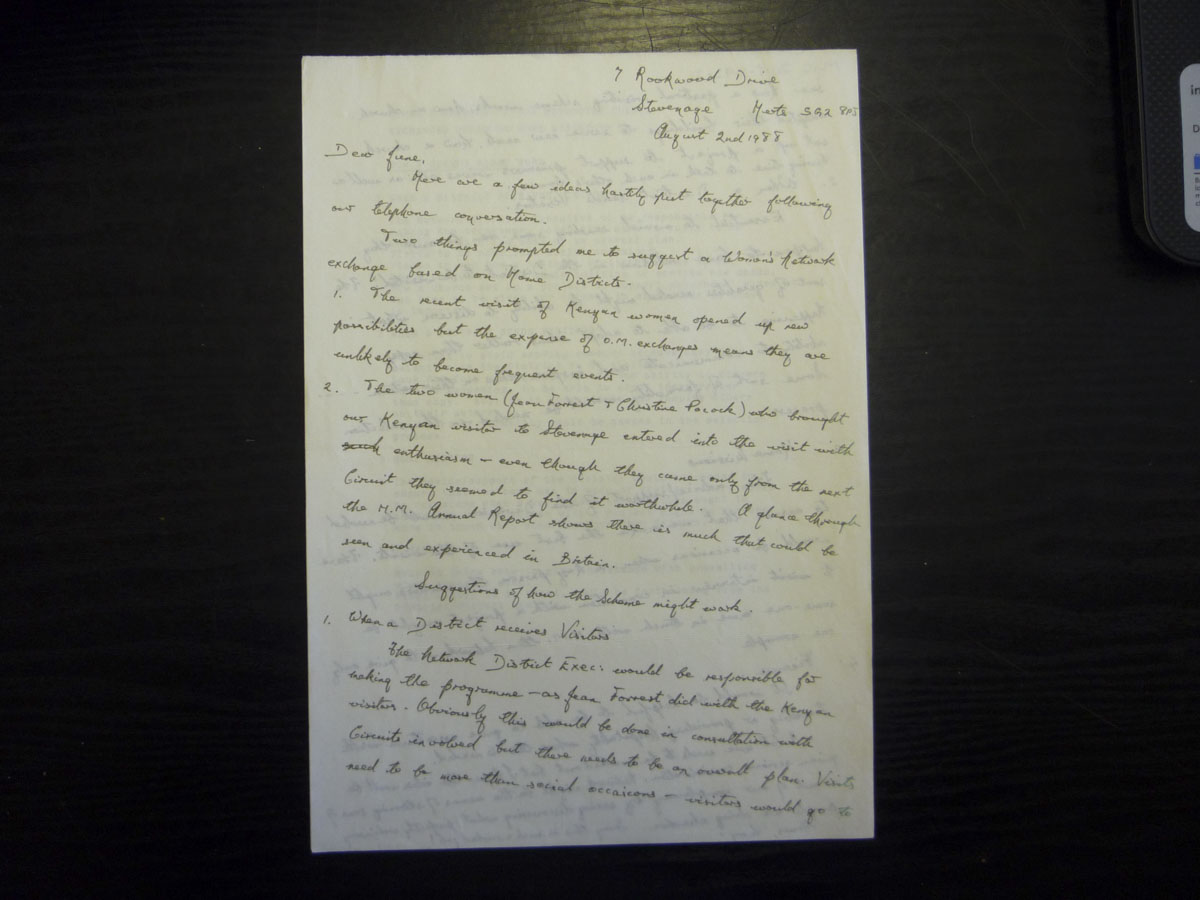 7 Rookwood Drive
Stevenage Herts SG2 8PJ
August 2nd 1988
Dear June,
Here are a few ideas hastily put together following
our telephone conversation.
Two things prompted me to suggest a Women's Network
exchange based on Home Districts.
1. The recent visit of Kenyan women opened up new
possibilities but the expense of O.M. exchanges means they are
unlikely to become frequent events.
2. The two women (Jean Forrest & Christine Pocock) who brought
our Kenyan visitor to Stevenage entered into the visit with
such enthusiasm - even though they came only from the next
Circuit they seemed to find it worthwhile. A glance through
the H.M. Annual Report shows there is much that could be
seen and experienced in Britain.
Suggestions of how the Scheme might work.
1. When a District receives Visitors
The Network District Exec: would be responsible for
making the programme - as Jean Forrest did with the Kenyan
visitors. Obviously this would be done in consultation with
Circuits involved but there needs to be an overall plan. Visits
need to be more than social occaicons - visitors would go to